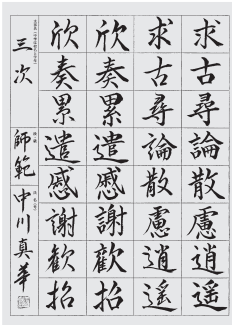 求古尋論散慮逍遥
求古尋論散慮逍遥
欣奏累遣慼謝歡招
欣奏累遣慼謝歡招
三次
師範
中川真華